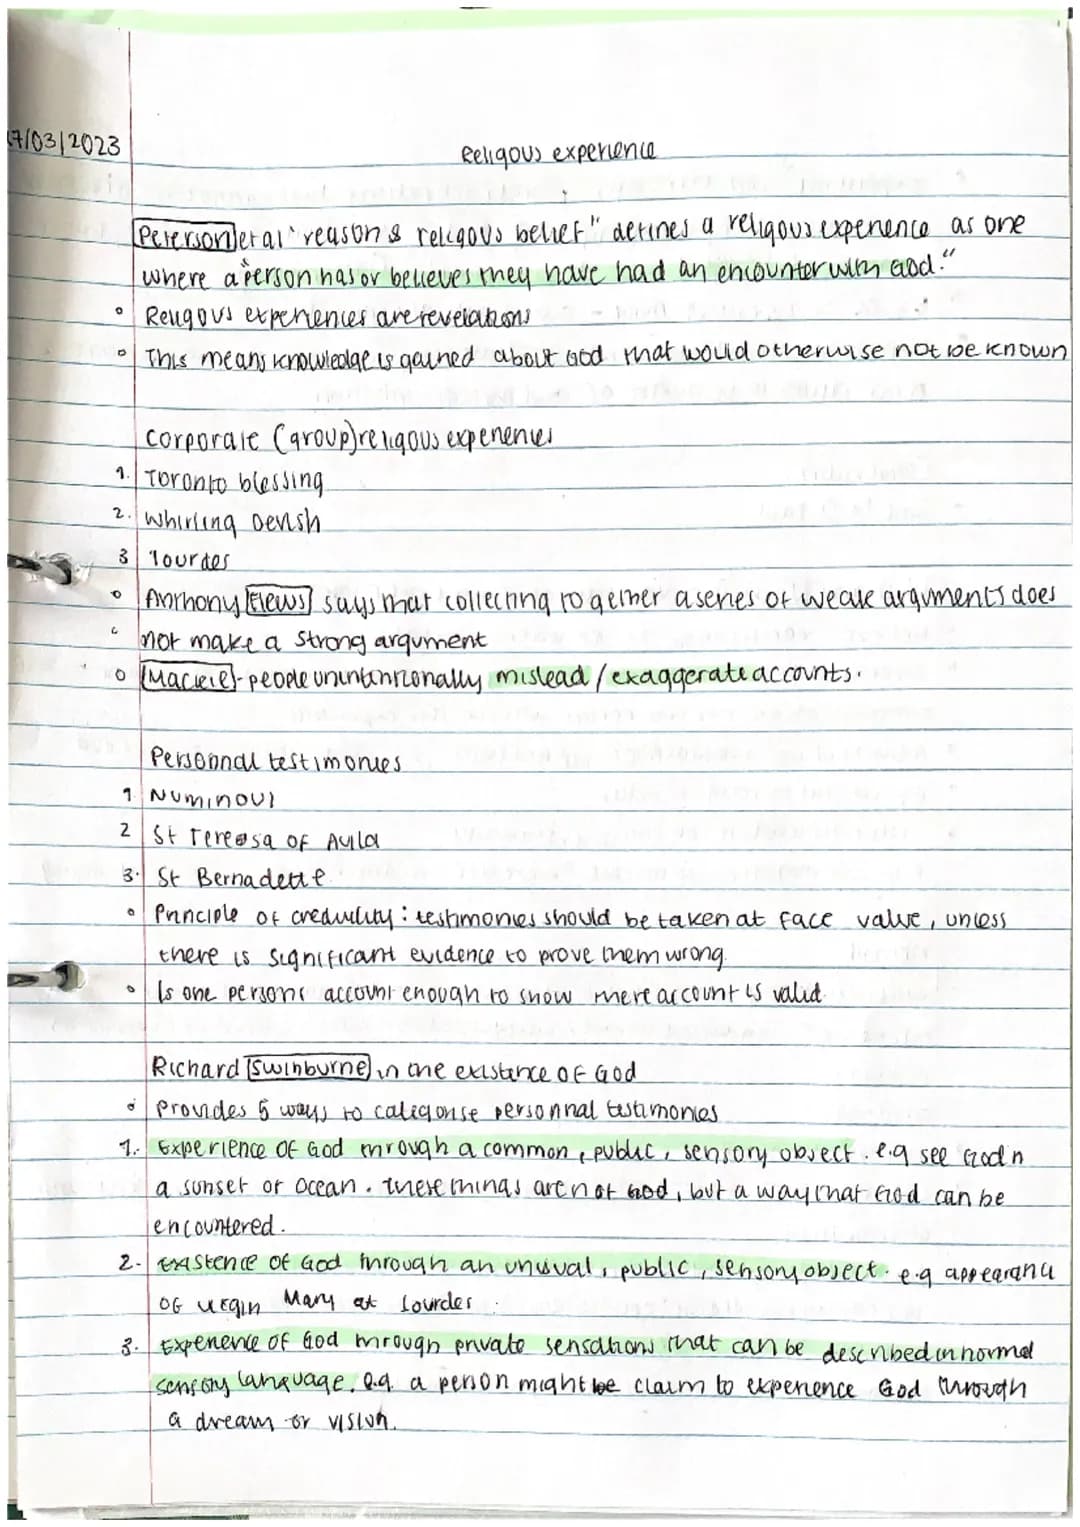 7/03/2023
Religous experience
Peterson et al "reason & religous belief" defines a religous experience as one
where a person has or believes they have had an encounter with God."
Religous experiences are revelations
This means knowledge is gained about God that would otherwise not be known
Corporate (group) religous experiences
1. Toronto blessing
2. Whirling Devish
3 lourdes
Anthony Flews says that collecting together a series of weak arguments does
not make a strong argument
Mackie - people unintentionally mislead / exaggerate accounts.
Personnal testimonies
1. Numinous
2 St Tereasa of Avila
3. St Bernadette
Principle of credulity: testimonies should be taken at face value, unless
there is significant evidence to prove them wrong.
Is one persons account enough to show mere account is valid.
Richard Swinburne in the existence of God
Provides 5 ways to categorise personnal testimonies
1. Experience of God through a common, public, sensory object. e.g see God n
a sunset or ocean. These things are not God, but a way that God can be
encountered.
2. Existence of God through an unusual, public, sensory object. e.g appearance
of Virgin Mary at Lourdes
3. Experience of God through private sensations that can be described in normal
sensory language. e.g. a person might be claim to experience God through
a dream or vision.